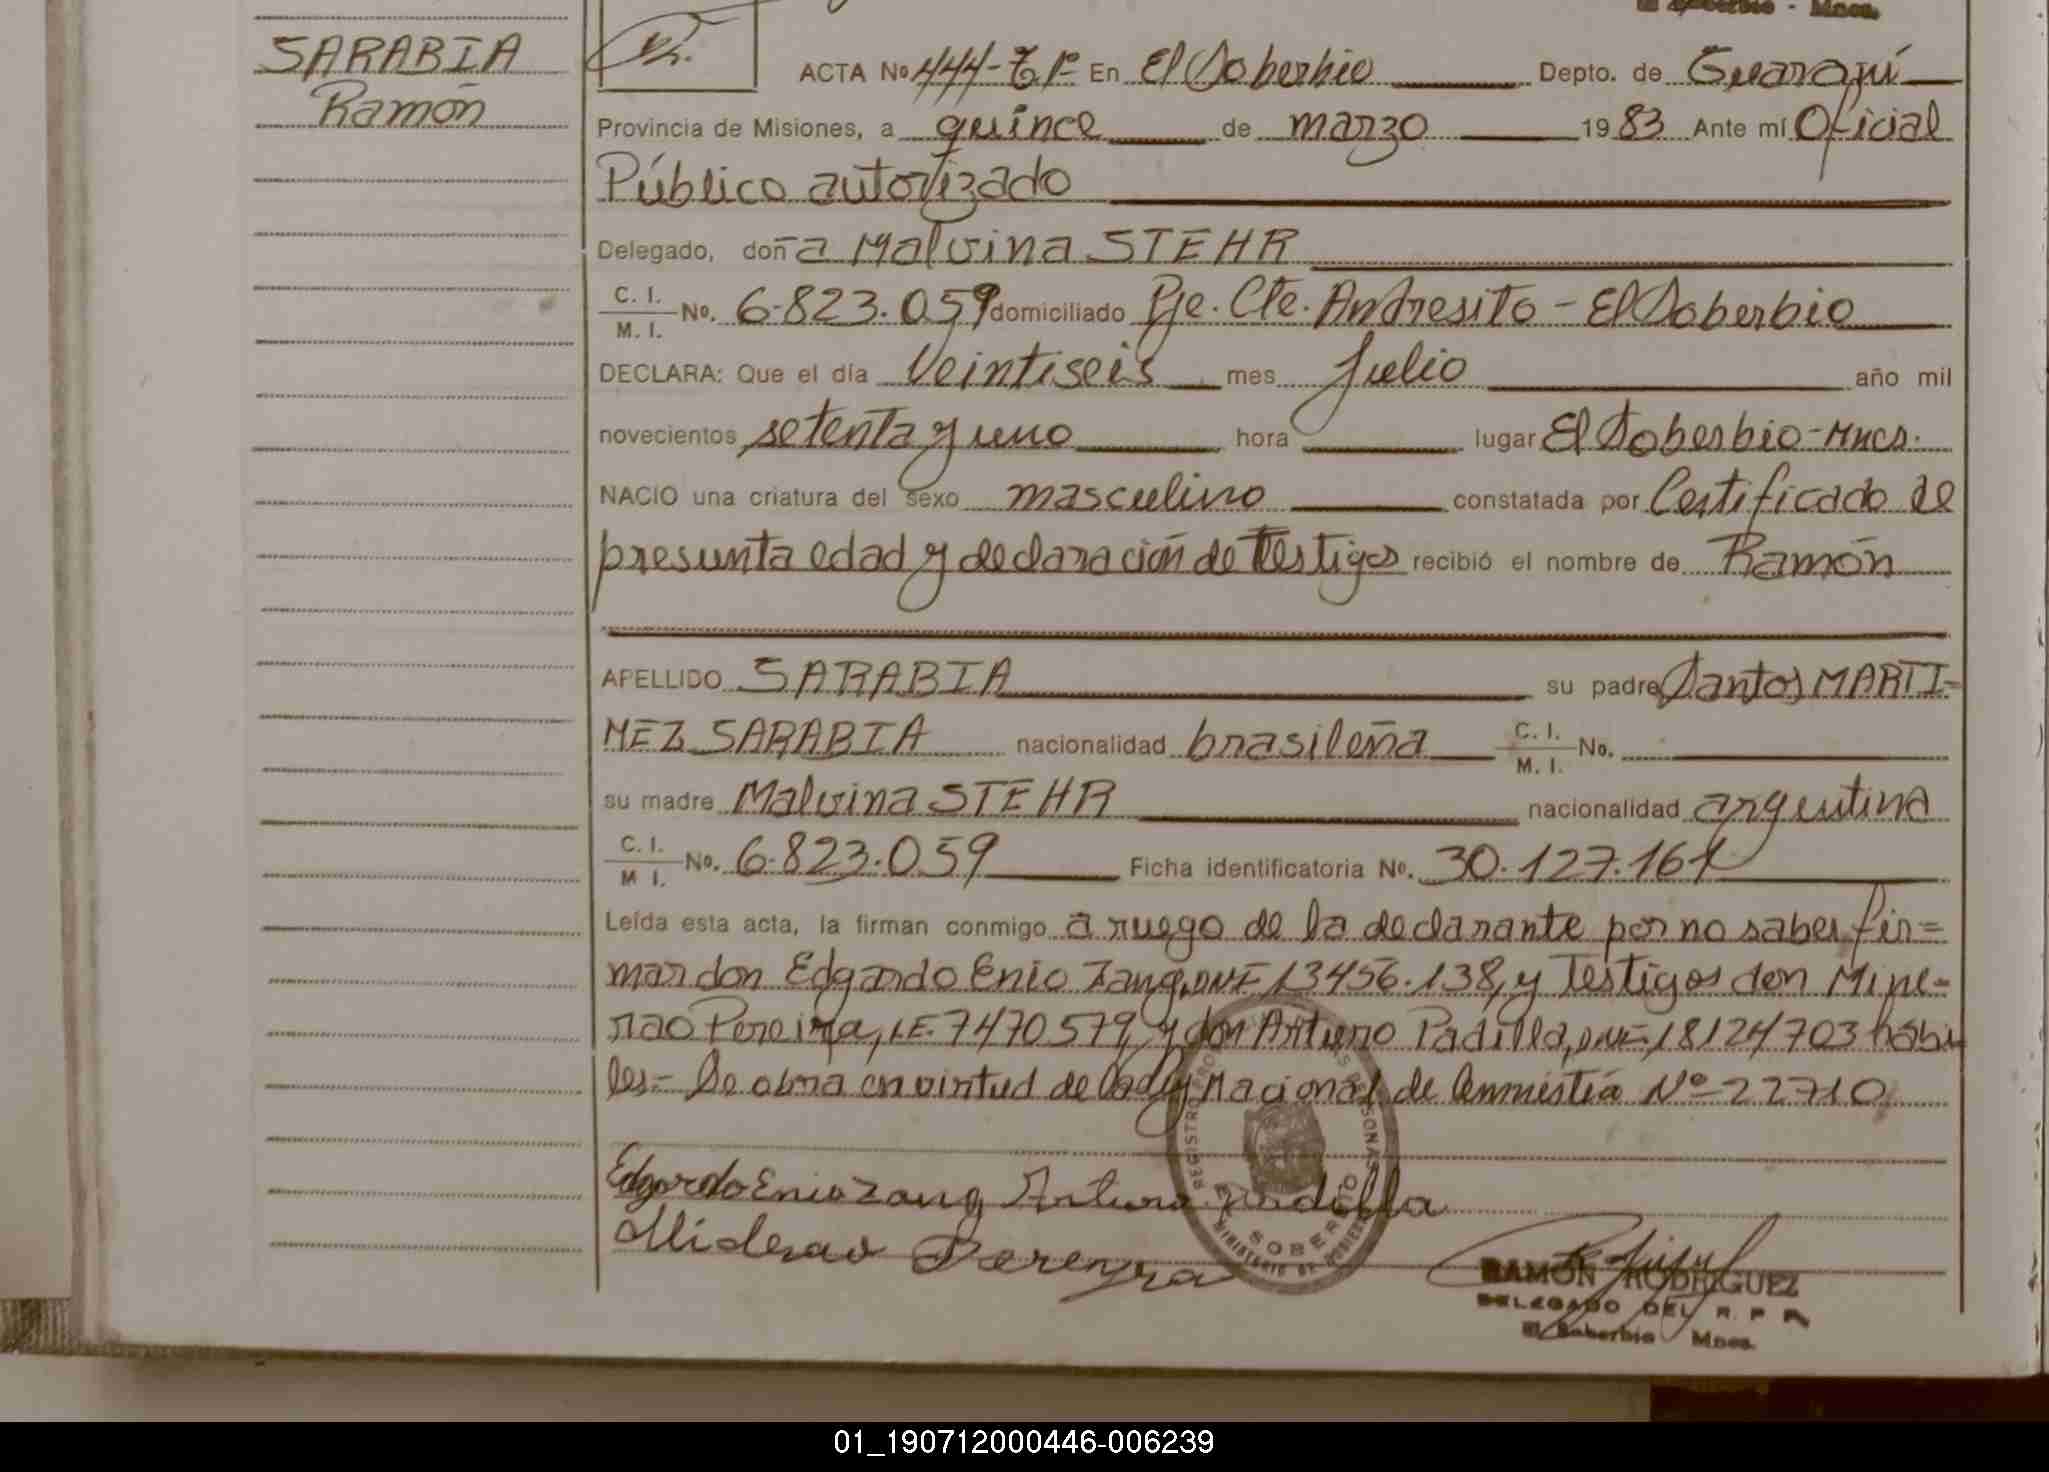 El Soberbio - Mnes.
SARABIA
Ramón
ACTA No 444-Tº 1º En El Soberbio Depto. de Guaraní
Provincia de Misiones, a quince de marzo 1983 Ante mí Oficial
Público autorizado
Delegado, doña Malvina STEHR
C. I.
M. I. No. 6.823.059 domiciliado Pje. Cte. Andresito - El Soberbio
DECLARA: Que el día Veintiseis mes Julio año mil
novecientos setenta y uno hora lugar El Soberbio-Mnes.
NACIO una criatura del sexo masculino constatada por Certificado de
presunta edad y declaración de Testigos recibió el nombre de Ramón
APELLIDO SARABIA su padre Santos MARTI-
NEZ SARABIA nacionalidad brasileña C. I.
M. I. No.
su madre Malvina STEHR nacionalidad argentina
C. I.
M I. No. 6.823.059 Ficha identificatoria No. 30.127.161
Leída esta acta, la firman conmigo a ruego de la declarante por no saber fir=
mar don Edgardo Enio Zang, DNI 13456.138, y Testigos don Mine-
rao Pereira, LE. 7470579, y don Arturo Padilla, DNI-18124703 hábi
les= Se obra en virtud de la Ley Nacional de Amnistía Nº 22710
Edgardo Enio Zang Arturo Padilla
Pereyra
REGISTRO PROVINCIAL DE LAS PERSONAS
EL SOBERBIO
MINISTERIO DE GOBIERNO
RAMON RODRIGUEZ
DELEGADO DEL R. P. P.
El Soberbio Mnes.
01_190712000446-006239